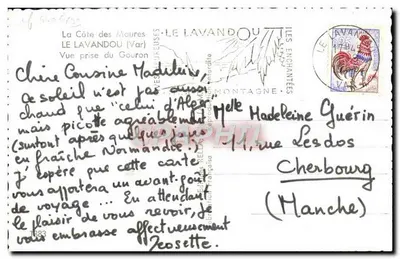 La Côte des Maures
LE LAVANDOU (Var)
Vue prise du Gouron
LE LAVANDOU
MONTAGNE
ILES ENCHANTÉES
LE LAVANDOU
VAR
Chère Cousine Madeleine,
Ce soleil n'est pas aussi
chaud que "celui d'Alger"
mais picote agréablement
(surtout après quelques jours
en fraîche Normandie.
J'espère que cette carte
vous apportera un avant-goût
de voyage ... En attendant
le plaisir de vous revoir, je
vous embrasse affectueusement
Josette.
Melle Madeleine Guérin
11, rue Lesdos
Cherbourg
(Manche)